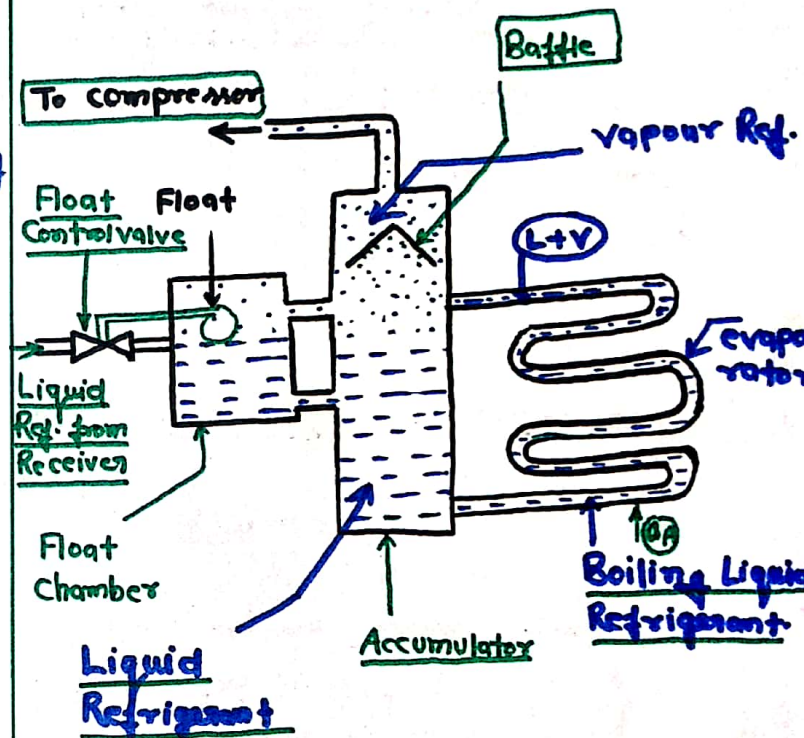 Baffle
To compressor
vapour Ref.
Float
Control valve
Float
L+V
evapo
rator
Liquid
Ref. from
Receiver
Float
Chamber
Boiling Liquid
Refrigerant.
Accumulator
Liquid
Refrigerant